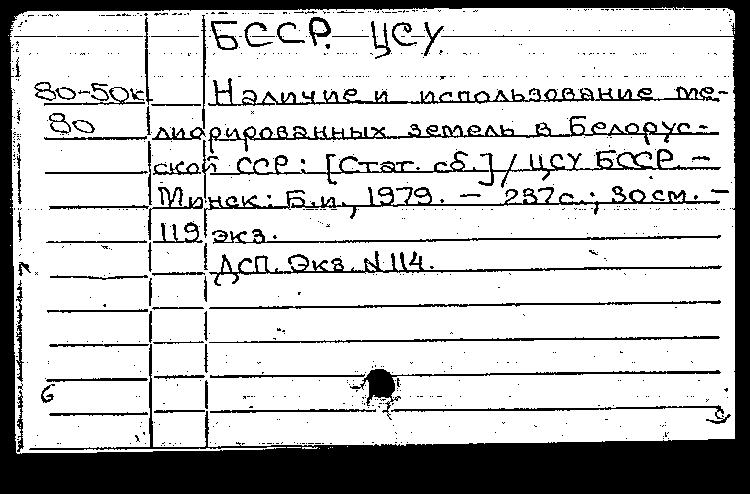 БССР. ЦСУ.
80-50к
80
Наличие и использование ме-
лиорированных земель в Белорус-
ской ССР: [Стат. сб.] / ЦСУ БССР. –
Минск: Б.и., 1979. – 237с.; 30см. –
119 экз.
ДСП. Экз. N 114.
6